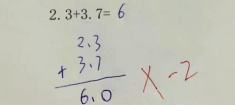 2.3+3.7= 6
2.3
+ 3.7
6.0 X -2